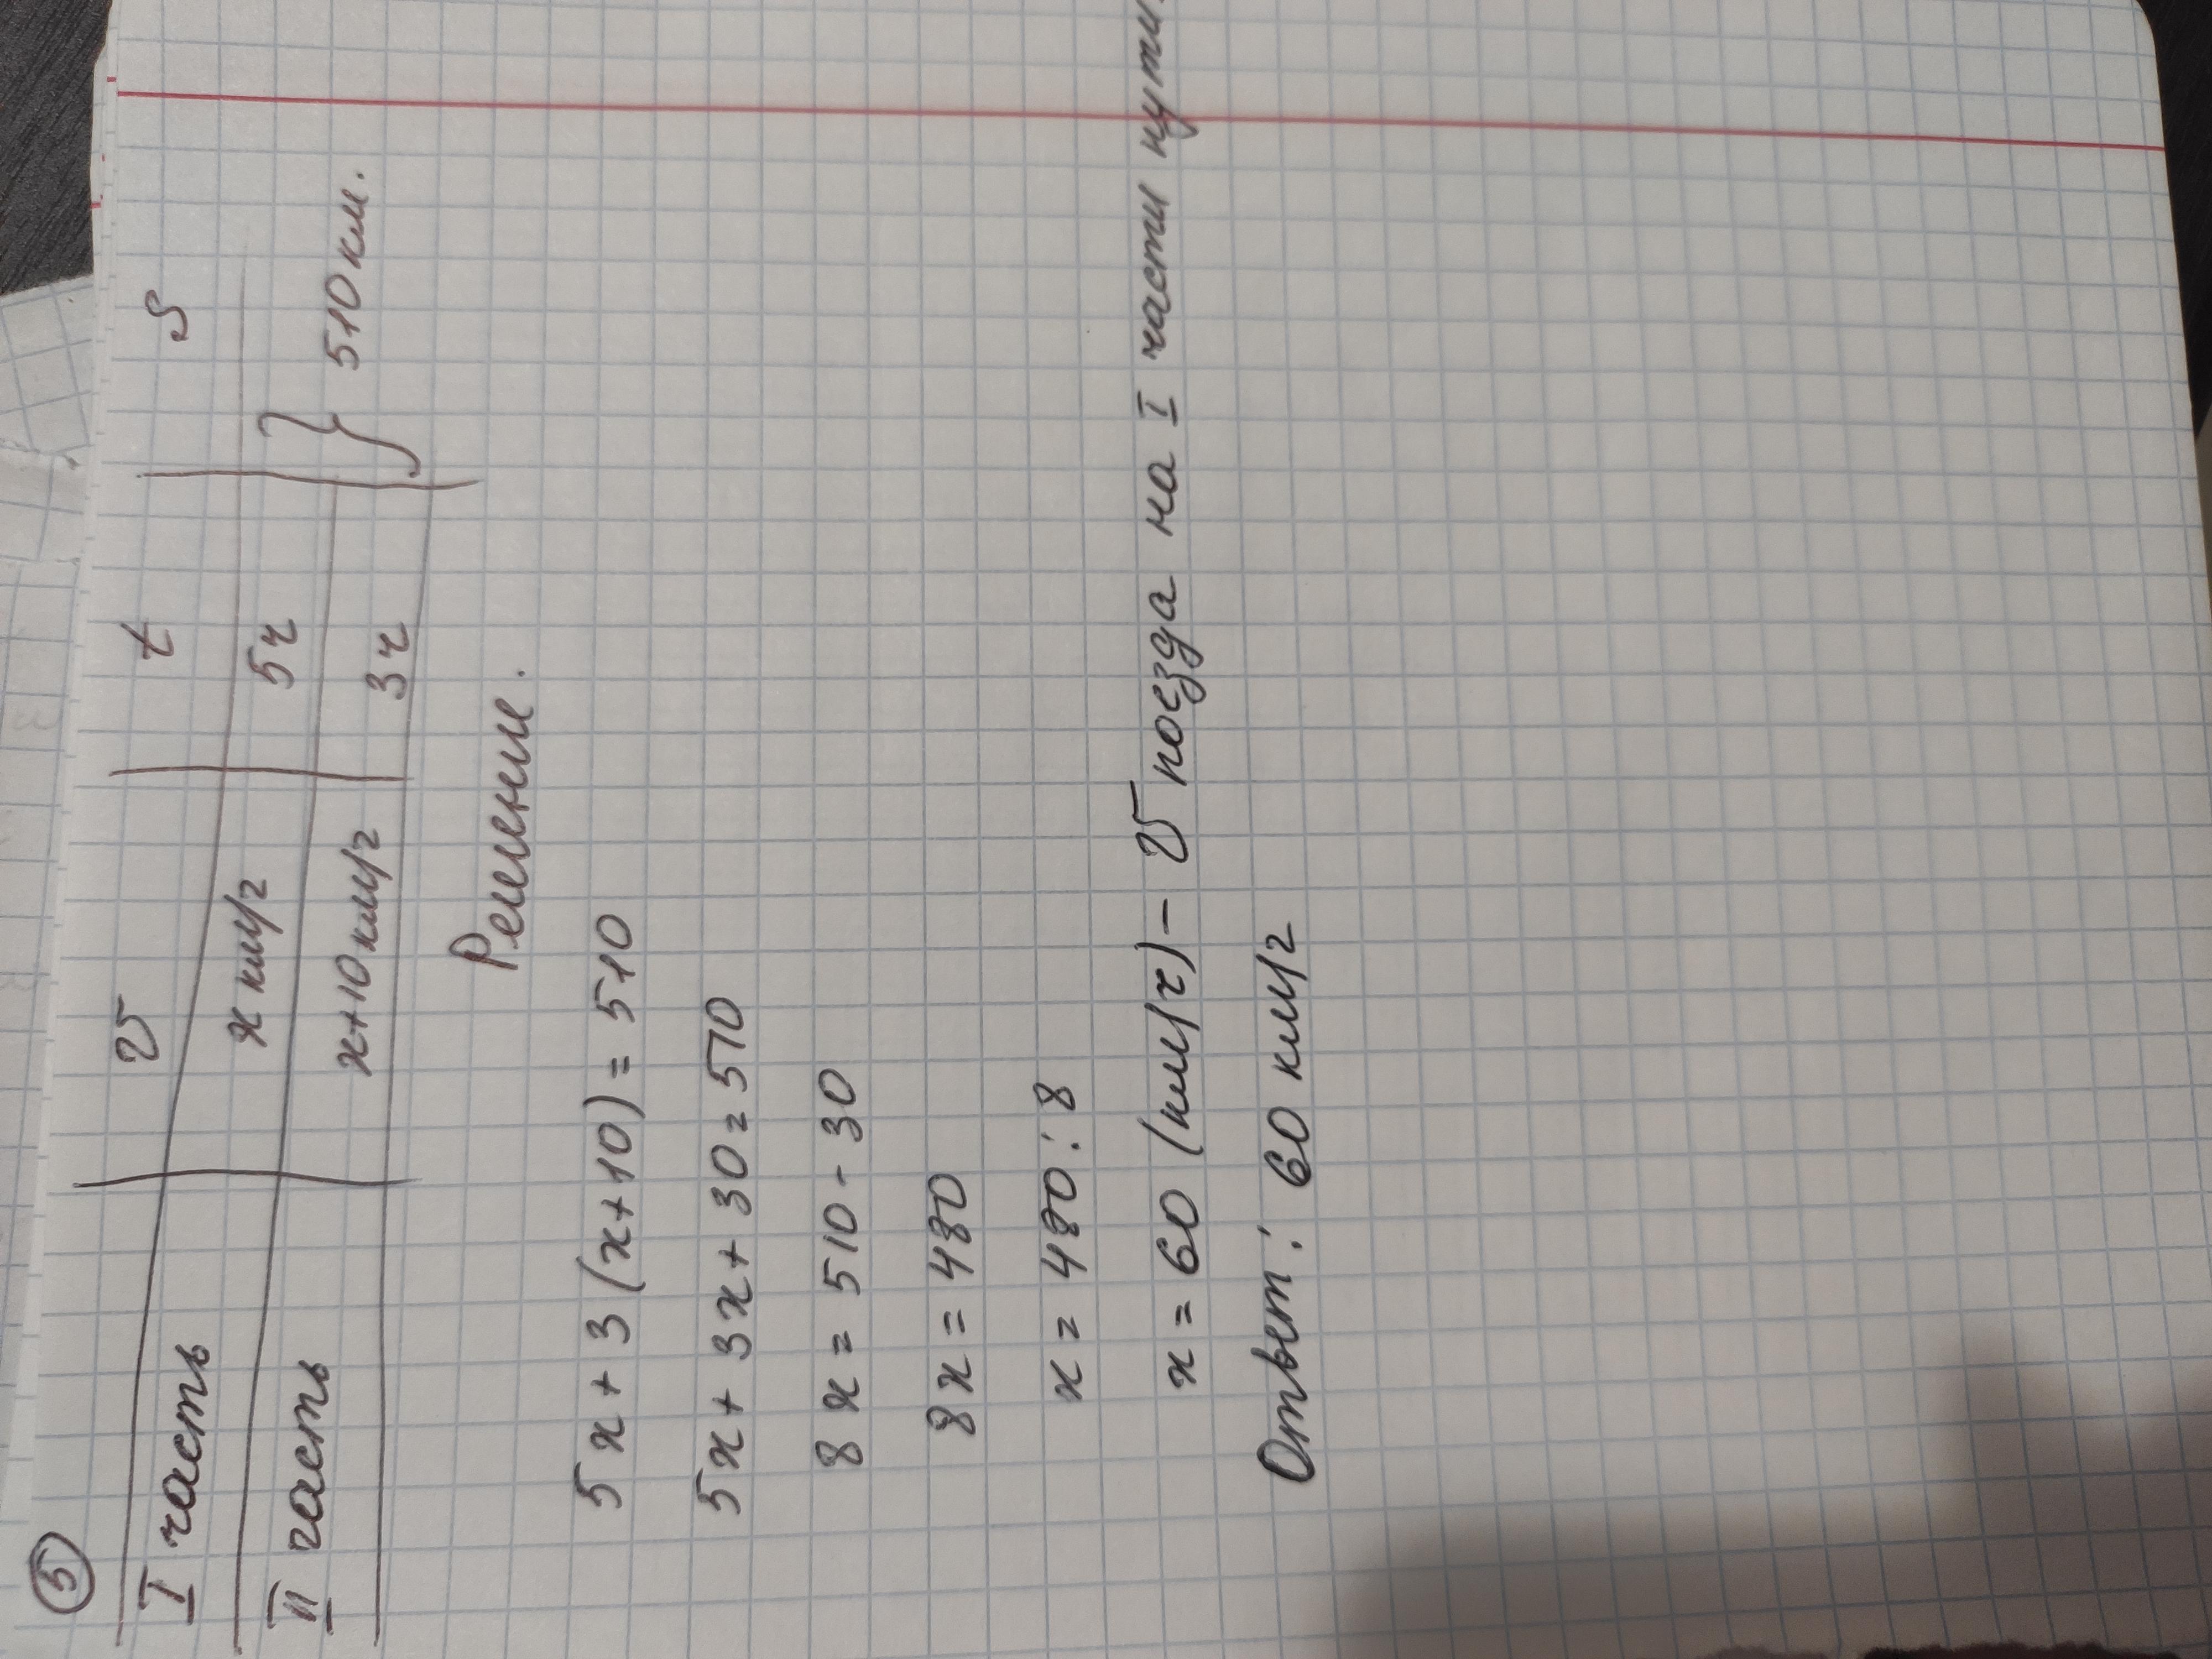 5
v t s
I часть х км/ч 5ч
II часть х+10 км/ч 3ч } 510 км.
Решение.
5х + 3 (х+10) = 510
5х + 3х + 30 = 510
8х = 510 - 30
8х = 480
х = 480 : 8
х = 60 (км/ч) - v поезда на I части пути.
Ответ: 60 км/ч